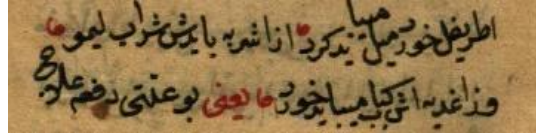 اطریفل خورد میل میباید کرد ٥ از اشربه باید ش شراب لیمو ٥
و ز اغدیه اش کباب میباید خورد ٥ یعنی بو علتی دفعه علاج